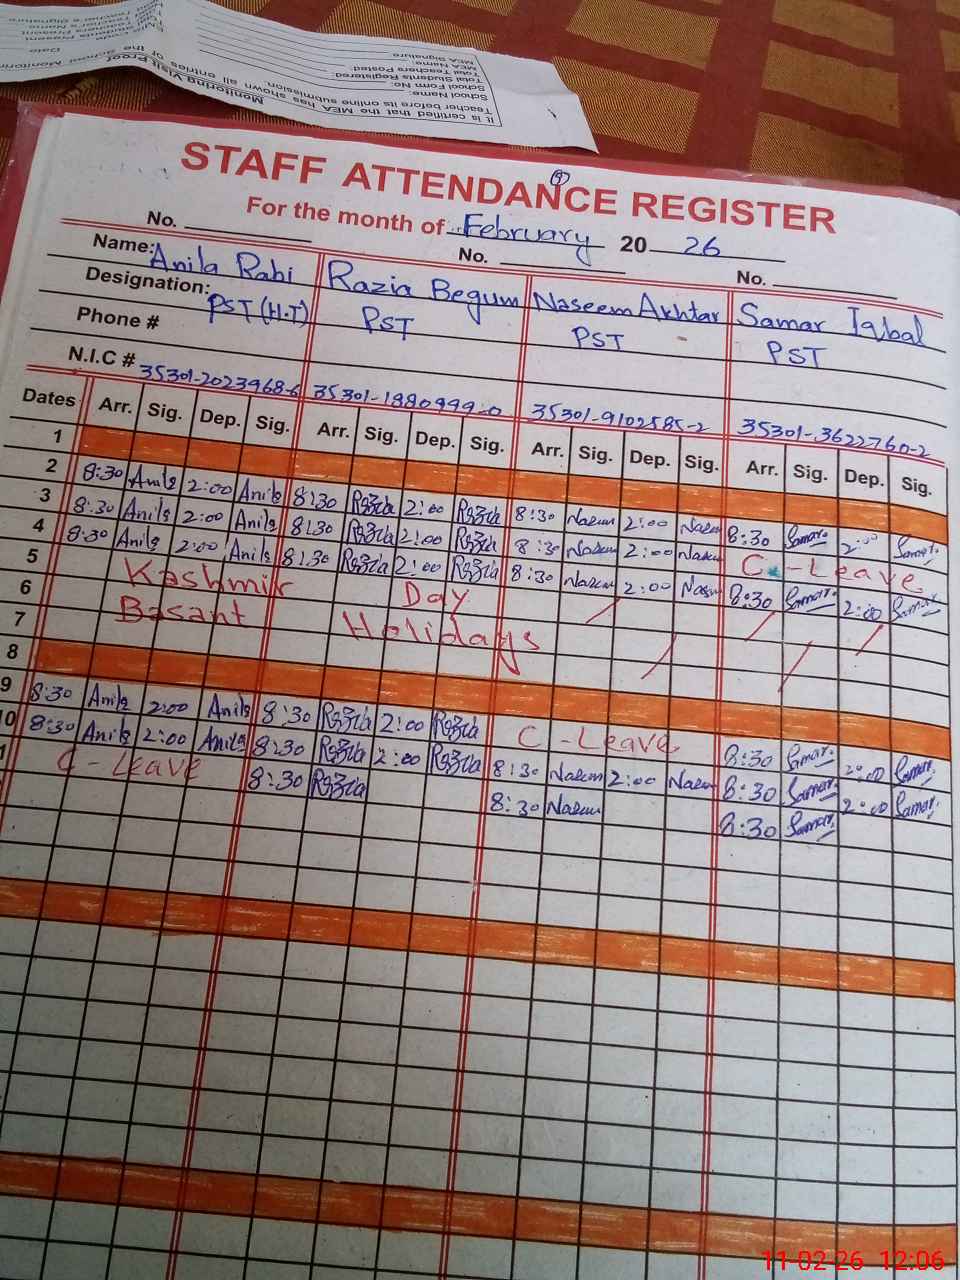 It is certified that the MEA has shown all entries of the
Teacher before its online submission.
Monitoring Visit Proof
School Name:
School Form No:
Total Students Registered:
Total Teachers Posted:
MEA Name:
MEA Signature
Date
STAFF ATTENDANCE REGISTER
For the month of February 2026
No. No. No.
Name: Anila Rabi Razia Begum Naseem Akhtar Samar Iqbal
Designation: PST (H.T) PST PST PST
Phone #
N.I.C # 35301-2023968-6 35301-1880999-0 35301-9102585-2 35301-3622760-2
Dates Arr. Sig. Dep. Sig. Arr. Sig. Dep. Sig. Arr. Sig. Dep. Sig. Arr. Sig. Dep. Sig.
1
2 8:30 Anila 2:00 Anila 8:30 Razia 2:00 Razia 8:30 Naseem 2:00 Naseem 8:30 Samar 2:00 Samar
3 8:30 Anila 2:00 Anila 8:30 Razia 2:00 Razia 8:30 Naseem 2:00 Naseem C-Leave
4 8:30 Anila 2:00 Anila 8:30 Razia 2:00 Razia 8:30 Naseem 2:00 Naseem 8:30 Samar 2:00 Samar
5 Kashmir Day
6 Basant Holidays
7
8
9 8:30 Anila 2:00 Anila 8:30 Razia 2:00 Razia C-Leave 8:30 Samar 2:00 Samar
10 8:30 Anila 2:00 Anila 8:30 Razia 2:00 Razia 8:30 Naseem 2:00 Naseem 8:30 Samar 2:00 Samar
C-Leave 8:30 Razia 8:30 Naseem 8:30 Samar
11-02-26 12:06